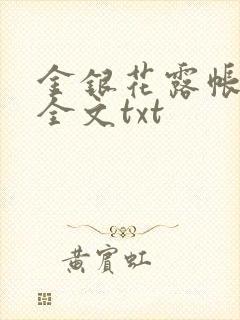 金银花露帐
全文txt
黄宾虹